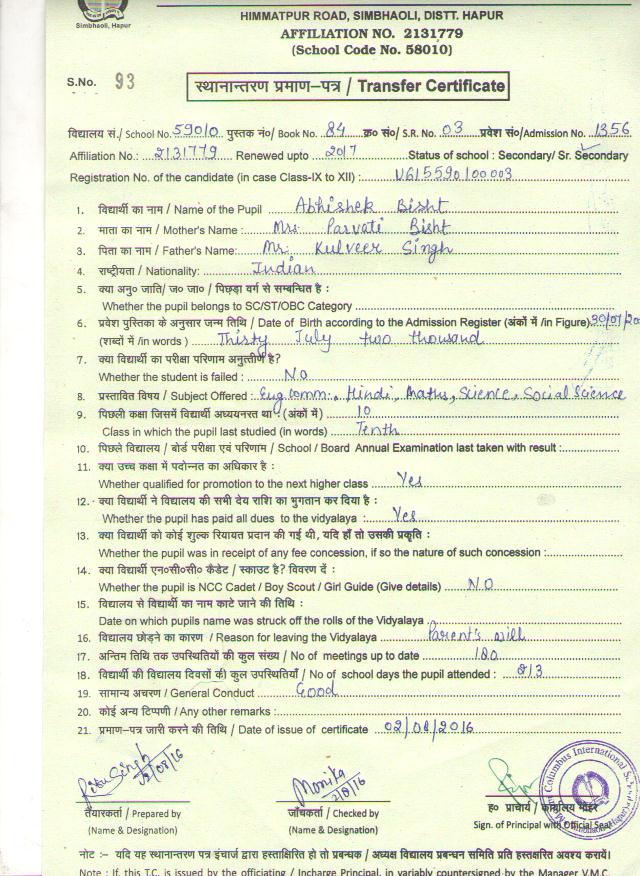 Simbhaoli, Hapur
HIMMATPUR ROAD, SIMBHAOLI, DISTT. HAPUR
AFFILIATION NO. 2131779
(School Code No. 58010)
S.No. 93
स्थानान्तरण प्रमाण–पत्र / Transfer Certificate
विद्यालय सं./ School No. 59010 पुस्तक नं०/ Book No. 84 क्र० सं०/ S.R. No. 03 प्रवेश सं०/Admission No. 1356
Affiliation No.: 2131779 Renewed upto 2017 Status of school : Secondary/ Sr. Secondary
Registration No. of the candidate (in case Class-IX to XII) : U615590100003
1. विद्यार्थी का नाम / Name of the Pupil Abhishek Bisht
2. माता का नाम / Mother's Name : Mrs. Parvati Bisht
3. पिता का नाम / Father's Name: Mr. Kulveer Singh
4. राष्ट्रीयता / Nationality: Indian
5. क्या अनु० जाति/ ज० जा० / पिछड़ा वर्ग से सम्बन्धित है :
Whether the pupil belongs to SC/ST/OBC Category
6. प्रवेश पुस्तिका के अनुसार जन्म तिथि / Date of Birth according to the Admission Register (अंकों में /in Figure) 30/07/20
(शब्दों में /in words ) Thirty July two thousand
7. क्या विद्यार्थी का परीक्षा परिणाम अनुत्तीर्ण है?
Whether the student is failed : No
8. प्रस्तावित विषय / Subject Offered : Eng comm., Hindi, Maths, Science, Social Science
9. पिछली कक्षा जिसमें विद्यार्थी अध्ययनरत था (अंकों में ) 10
Class in which the pupil last studied (in words) Tenth
10. पिछले विद्यालय / बोर्ड परीक्षा एवं परिणाम / School / Board Annual Examination last taken with result :
11. क्या उच्च कक्षा में पदोन्नत का अधिकार है :
Whether qualified for promotion to the next higher class Yes
12. क्या विद्यार्थी ने विद्यालय की सभी देय राशि का भुगतान कर दिया है :
Whether the pupil has paid all dues to the vidyalaya : Yes
13. क्या विद्यार्थी को कोई शुल्क रियायत प्रदान की गई थी, यदि हाँ तो उसकी प्रकृति :
Whether the pupil was in receipt of any fee concession, if so the nature of such concession :
14. क्या विद्यार्थी एन०सी०सी० कैडेट / स्काउट है? विवरण दें :
Whether the pupil is NCC Cadet / Boy Scout / Girl Guide (Give details) NO
15. विद्यालय से विद्यार्थी का नाम काटे जाने की तिथि :
Date on which pupils name was struck off the rolls of the Vidyalaya
16. विद्यालय छोड़ने का कारण / Reason for leaving the Vidyalaya Parent's will
17. अन्तिम तिथि तक उपस्थितियों की कुल संख्य / No of meetings up to date 180
18. विद्यार्थी की विद्यालय दिवसों की कुल उपस्थितियाँ / No of school days the pupil attended : 213
19. सामान्य अचरण / General Conduct Good
20. कोई अन्य टिप्पणी / Any other remarks :
21. प्रमाण–पत्र जारी करने की तिथि / Date of issue of certificate 02/08/2016
Ritu Singh
02/08/16
Monika
2/8/16
Columbus International
तैयारकर्ता / Prepared by
(Name & Designation)
जाँचकर्ता / Checked by
(Name & Designation)
ह० प्राचार्य / कार्यालय मोहर
Sign. of Principal with Official Seal
नोट :– यदि यह स्थानान्तरण पत्र इंचार्ज द्वारा हस्ताक्षिरित हो तो प्रबन्धक / अध्यक्ष विद्यालय प्रबन्धन समिति प्रति हस्तक्षरित अवश्य करायें।
Note : If, this T.C. is issued by the officiating / Incharge Principal, in variably countersigned by the Manager V.M.C.